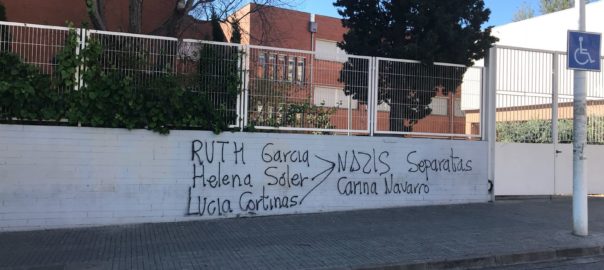 RUTH Garcia
Helena Soler
Lucia Cortinas
NAZIS Separatas
Carina Navarro